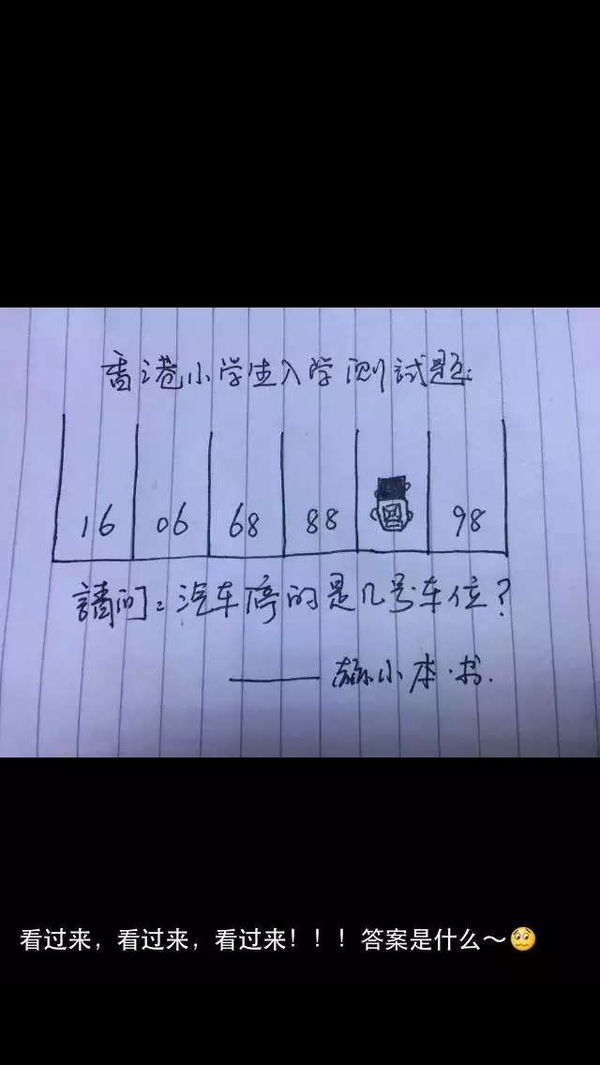 香港小学生入学测试题:
16 06 68 88 98
請问:汽车停的是几号车位?
小本·书.
看过来，看过来，看过来！！！答案是什么～